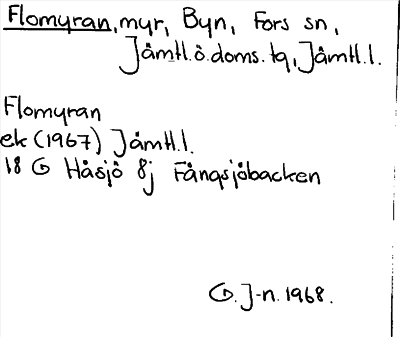 Flomyran, myr, Byn, Fors sn,
Jämtl.ö.doms.tq, Jämtl.l.
Flomyran
ek (1967) Jämtl.l.
18 G Håsjö 8j Fångsjöbacken
G. J-n. 1968.